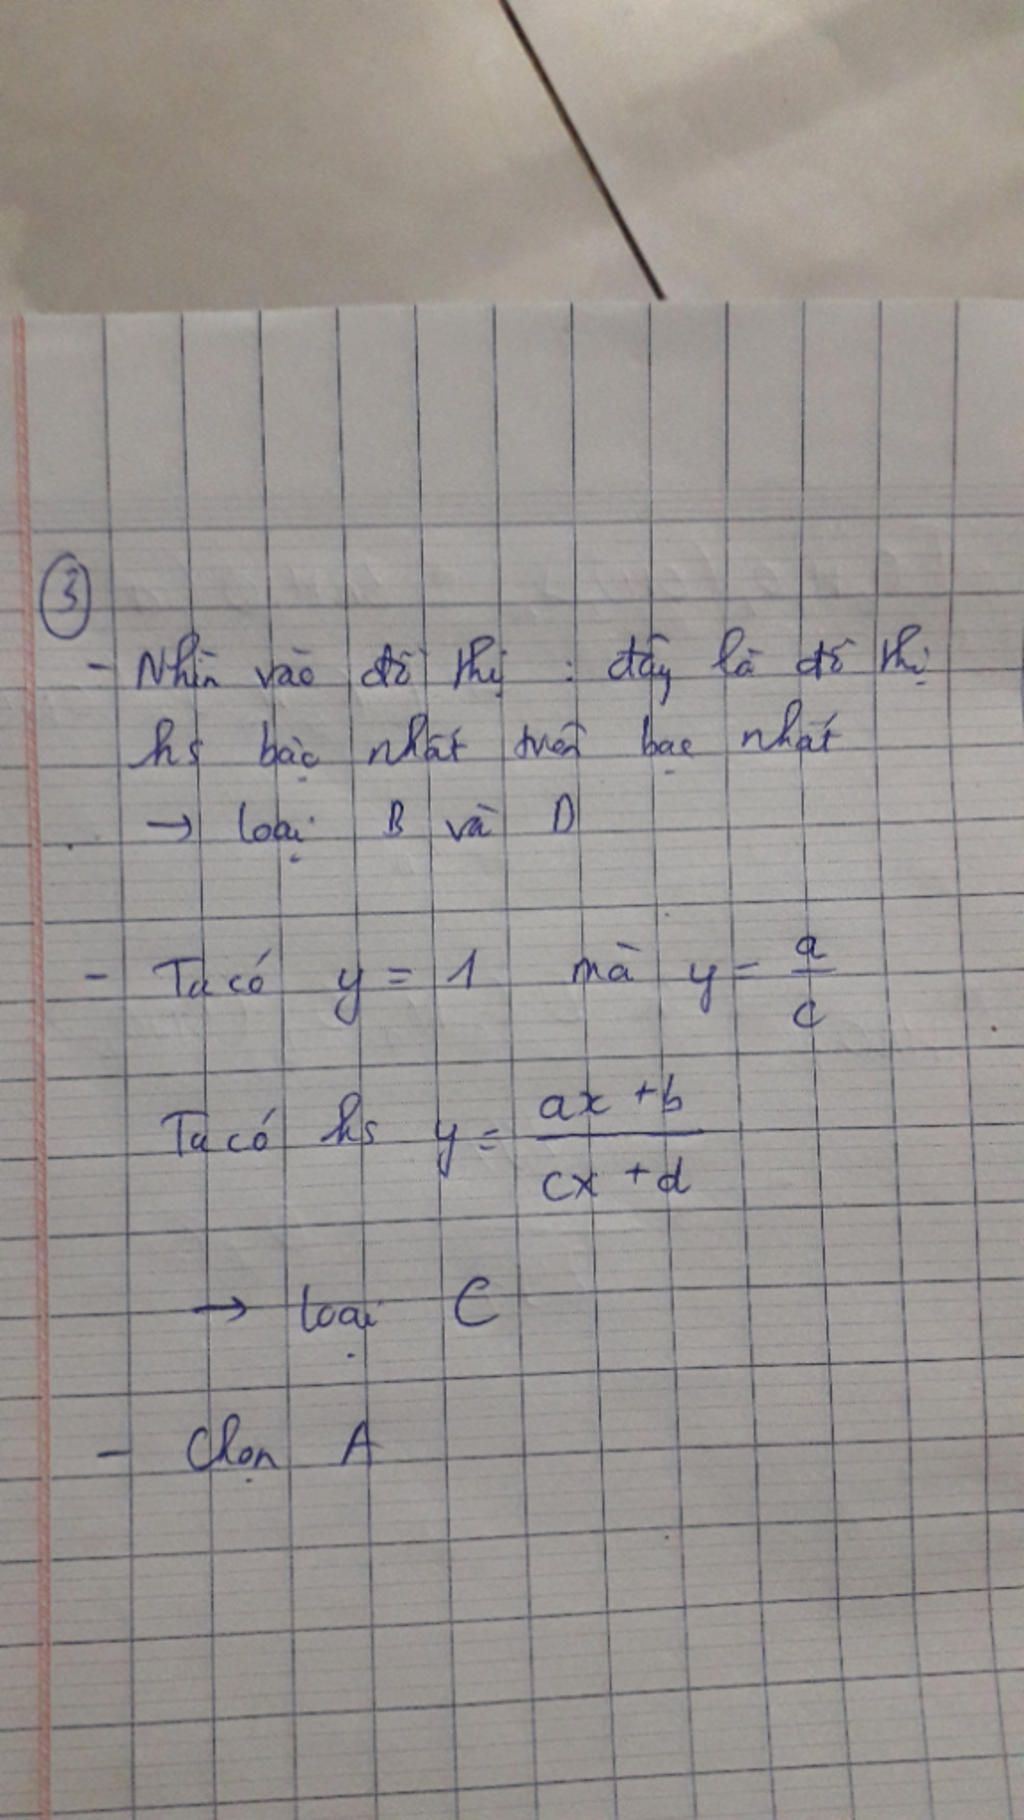 ③
- Nhìn vào đồ thị : đây là đồ thị
hs bậc nhất trên bậc nhất
→ loại B và D
- Ta có y = 1 mà y = a/c
Ta có hs y = (ax + b)/(cx + d)
→ loại C
- Chọn A